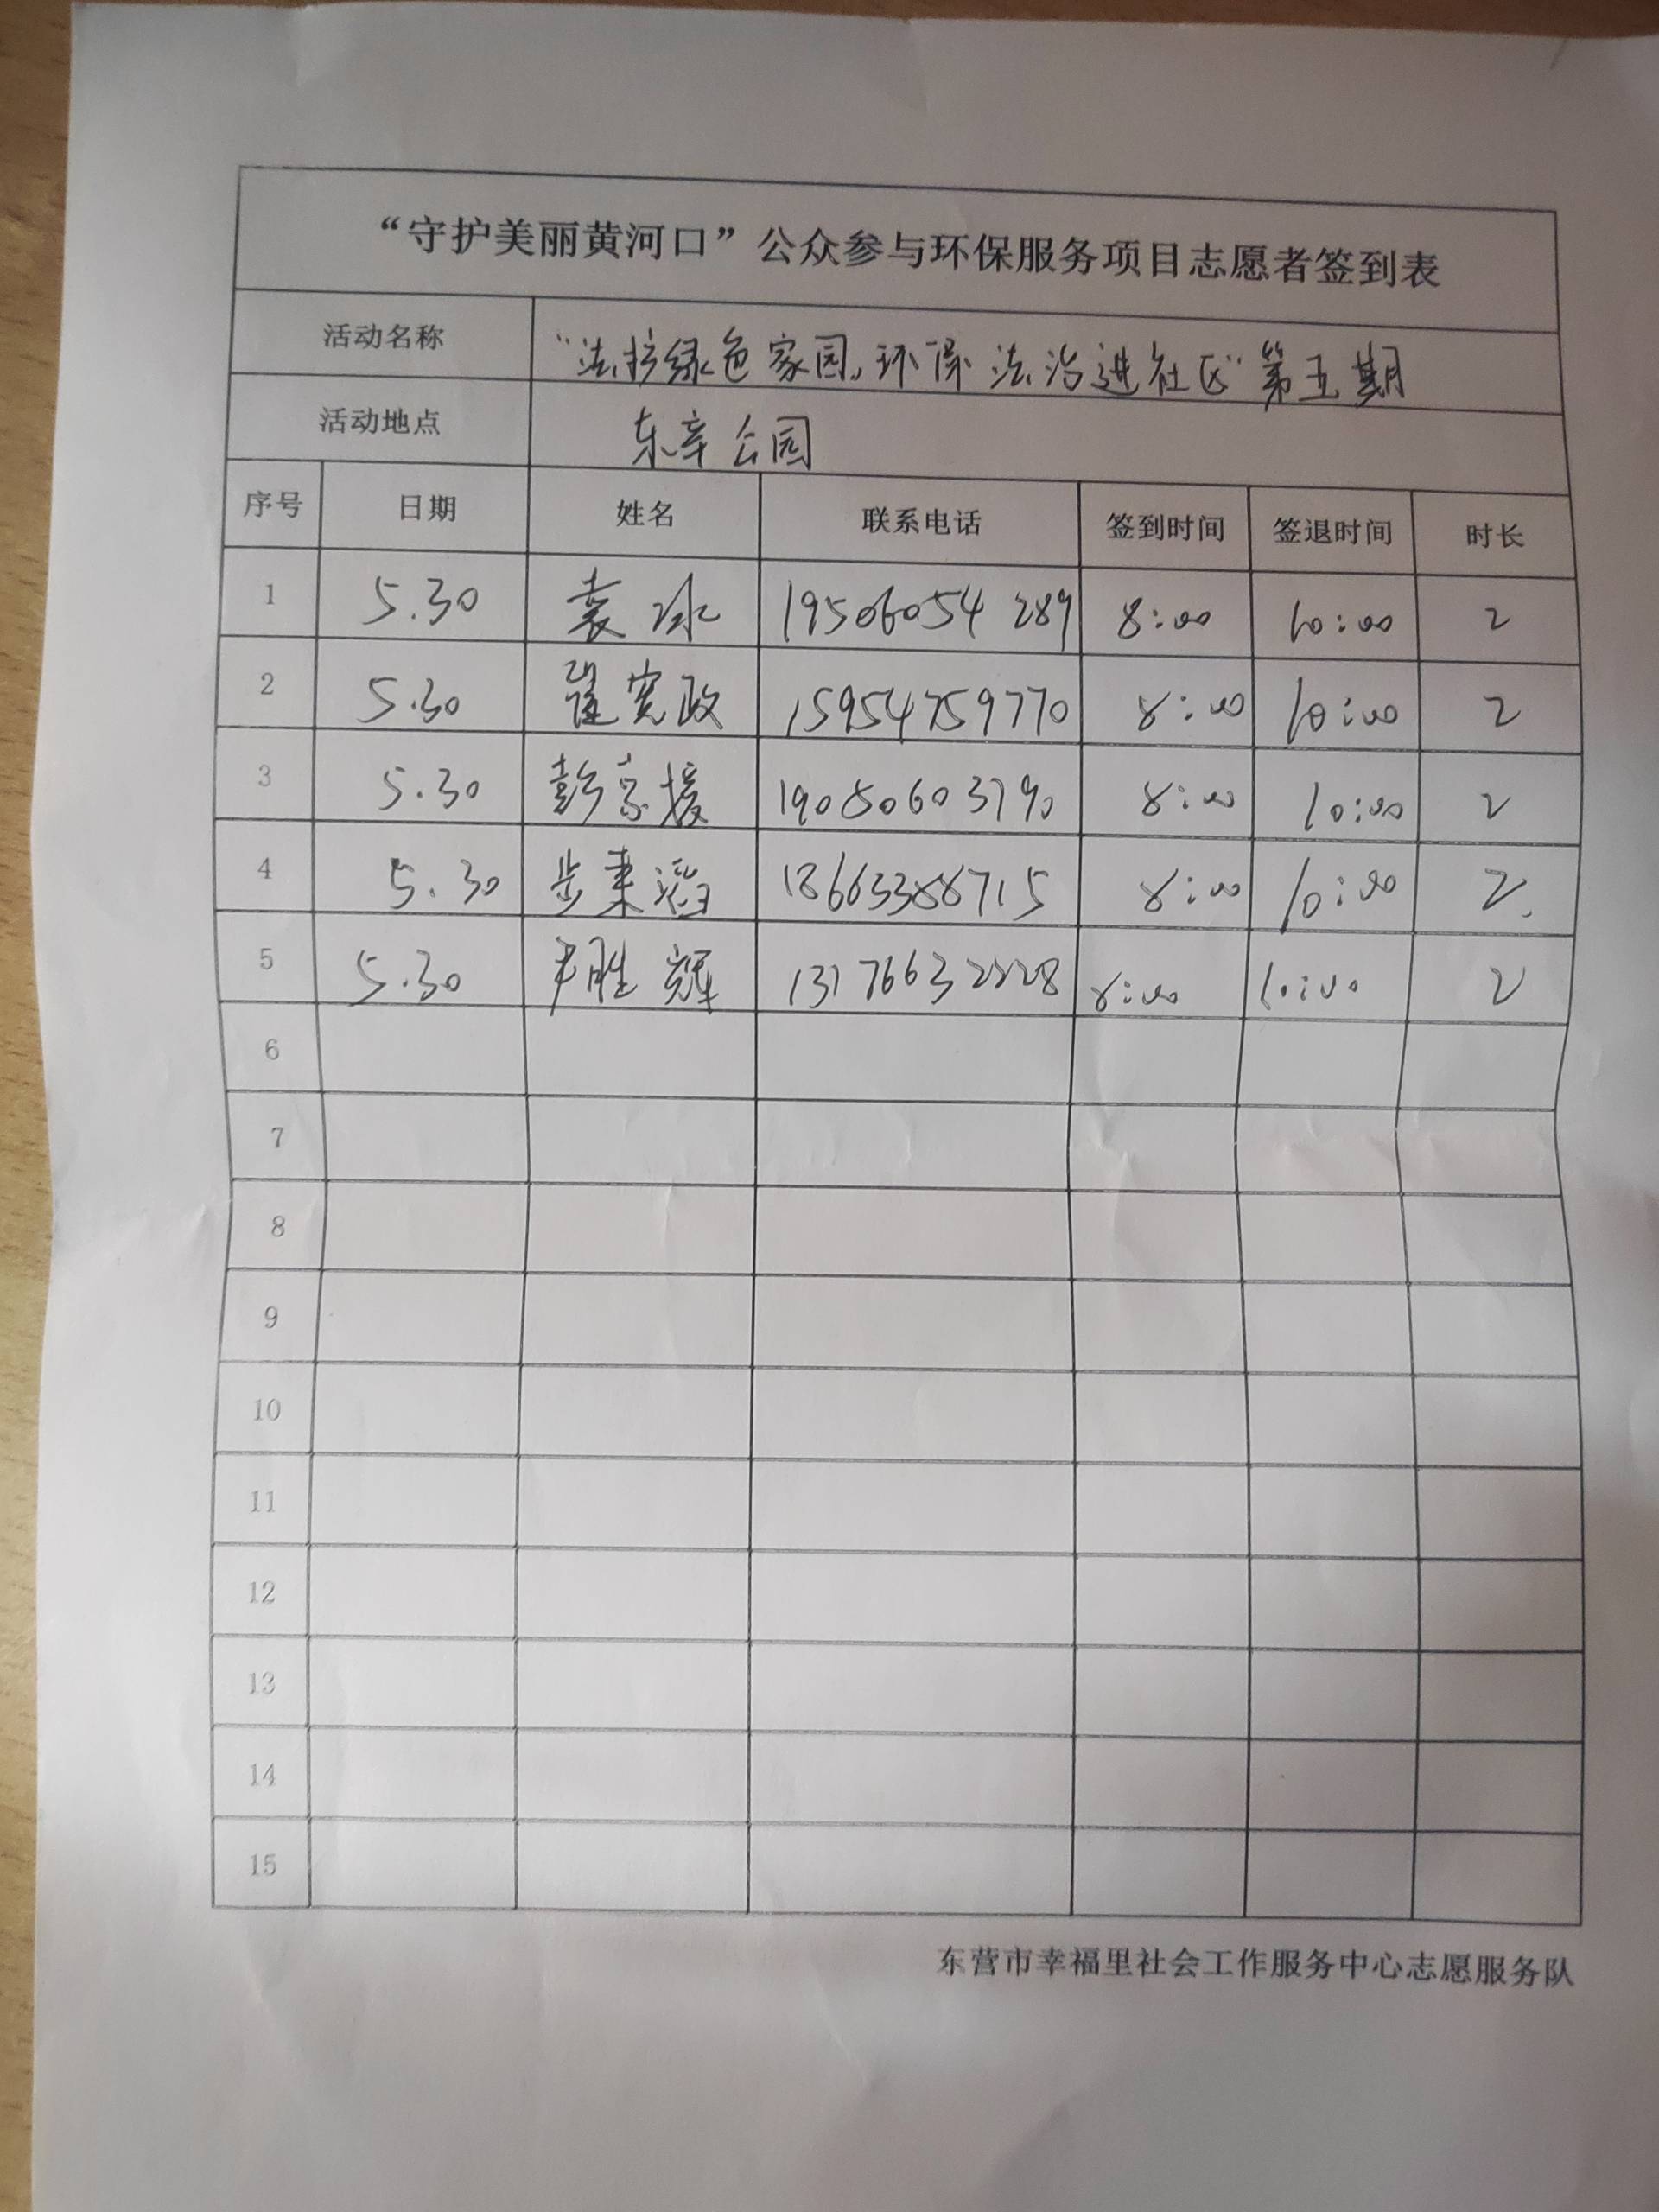 “守护美丽黄河口”公众参与环保服务项目志愿者签到表
活动名称 “法护绿色家园,环保法治进社区”第五期
活动地点 东辛公园
序号 日期 姓名 联系电话 签到时间 签退时间 时长
1 5.30 袁冰 19506054289 8:00 10:00 2
2 5.30 崔宪政 15954759770 8:00 10:00 2
3 5.30 彭京援 19050603790 8:00 10:00 2
4 5.30 步秉滔 18663388715 8:00 10:00 2
5 5.30 尹胜辉 13176632228 8:00 10:00 2
6
7
8
9
10
11
12
13
14
15
东营市幸福里社会工作服务中心志愿服务队